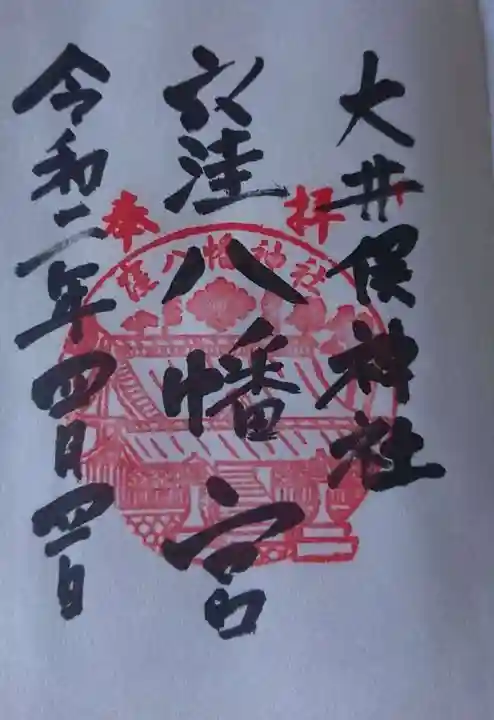 大井俣神社
奉拝
窪八幡宮
窪八幡神社
令和二年四月四日